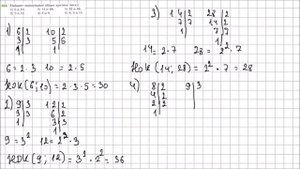 1) 6|2 10|2
3|3 5|5
1| 1|
6 = 2·3 10 = 2·5
НОК(6; 10) = 2·3·5 = 30
2) 9|3 12|2
3|3 6|2
1| 3|3
1|
9 = 3² 12 = 2²·3
НОК(9; 12) = 3²·2² = 36
3) 14|2 28|2
7|7 14|2
1| 7|7
1|
14 = 2·7 28 = 2²·7
НОК(14; 28) = 2²·7 = 28
4) 8|2 9|3
4|2
2|2
1|